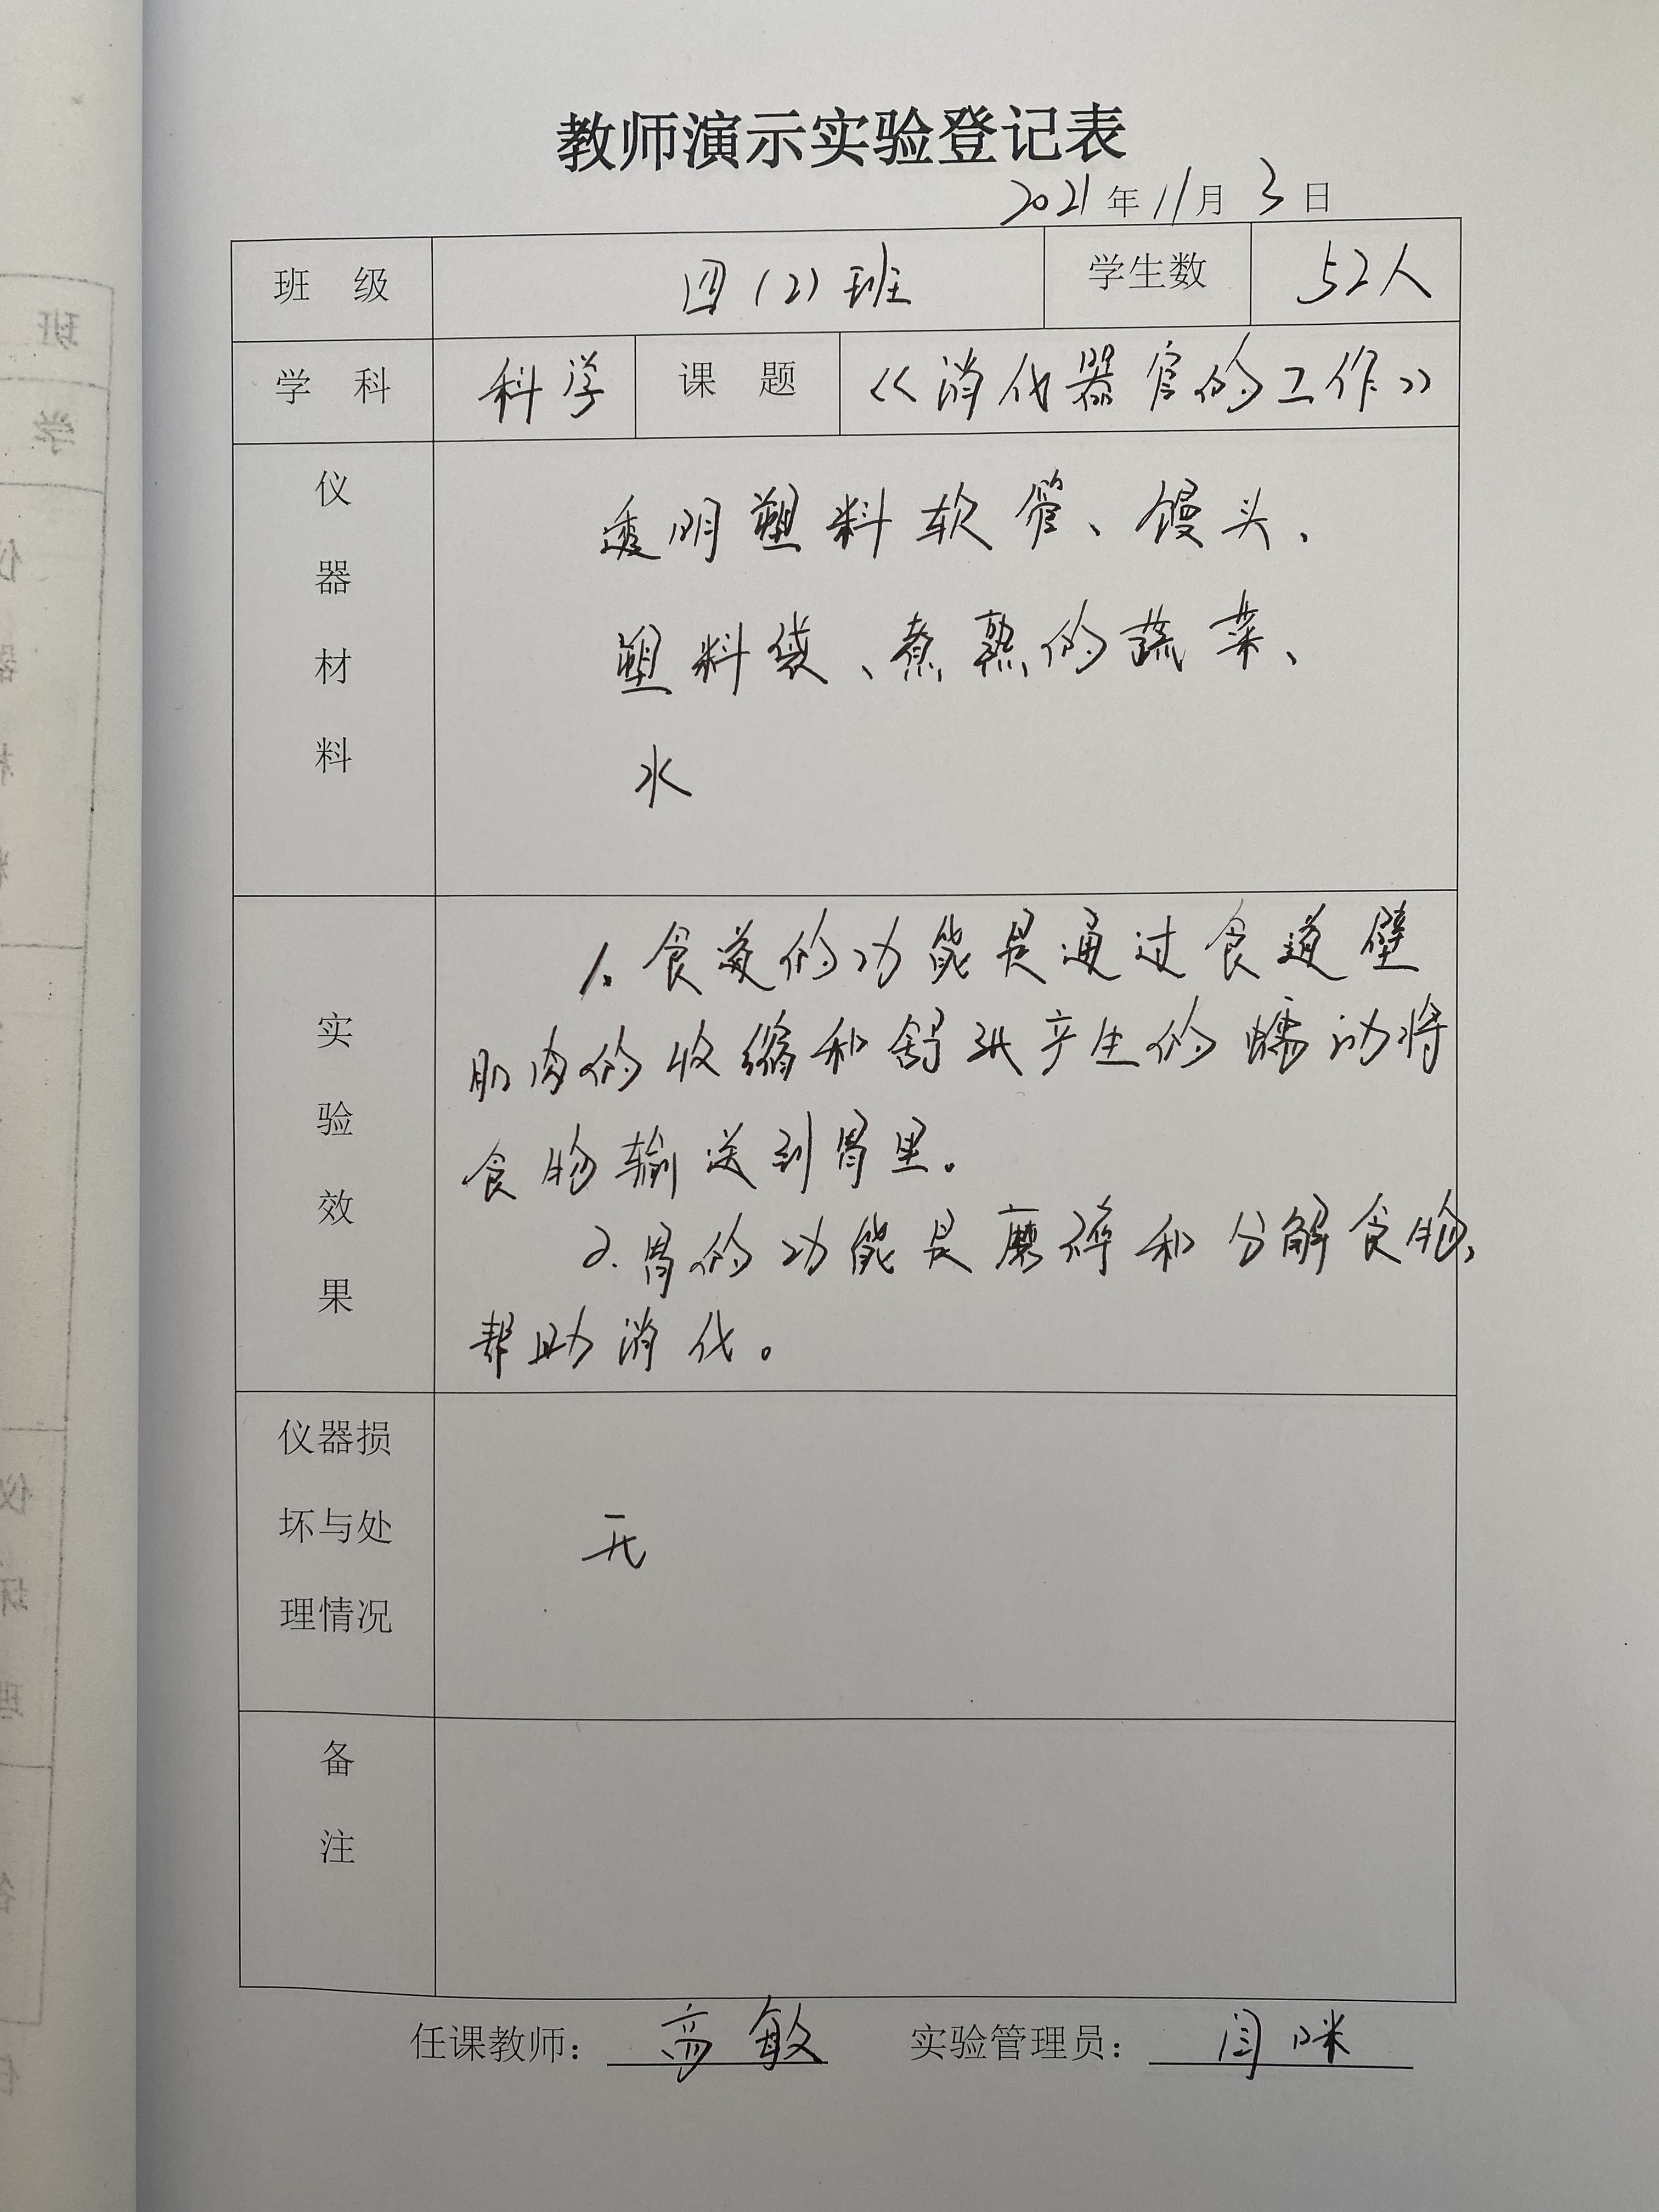 教师演示实验登记表
2021年11月3日
班 级 四(2)班 学生数 52人
学 科 科学 课 题 《消化器官的工作》
仪器材料
透明塑料软管、馒头、
塑料袋、煮熟的蔬菜、
水
实验效果
1.食道的功能是通过食道壁
肌肉的收缩和舒张产生的蠕动将
食物输送到胃里。
2.胃的功能是磨碎和分解食物,
帮助消化。
仪器损
坏与处
理情况
无
备注
任课教师:高敏 实验管理员:闫